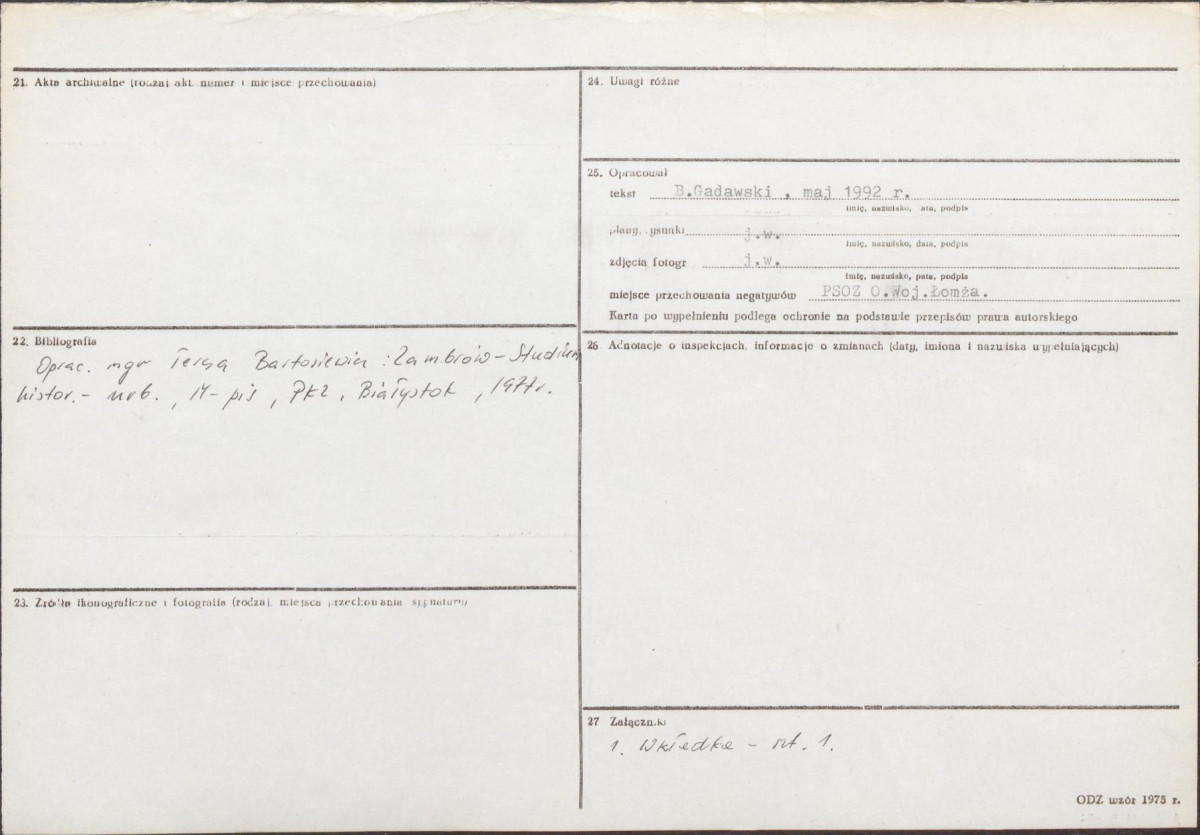 21. Akta archiwalne (rodzaj akt, numer i miejsce przechowania)
22. Bibliografia
Oprac. mgr Teresa Bartosiewicz : Zambrów - Studium
histor. - urb. , M-pis , PKZ , Białystok , 1977r.
23. Źródła ikonograficzne i fotografia (rodzaj, miejsca przechowania sygnatury)
24. Uwagi różne
25. Opracował
tekst B.Gadawski , maj 1992 r.
imię, nazwisko, data, podpis
plany, rysunki j.w.
imię, nazwisko, data, podpis
zdjęcia fotogr j.w.
imię, nazwisko, data, podpis
miejsce przechowania negatywów PSOZ O.Woj.Łomża.
Karta po wypełnieniu podlega ochronie na podstawie przepisów prawa autorskiego
26 Adnotacje o inspekcjach, informacje o zmianach (daty, imiona i nazwiska wypełniających)
27 Załączniki
1. Wkładka - szt. 1.
ODZ wzór 1975 r.